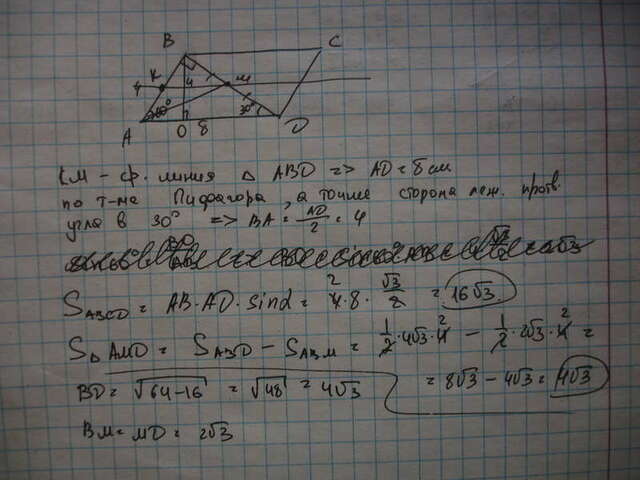 B
C
K
4
M
4
60°
30°
A
O
8
D
КМ - ср. линия Δ ABD => AD = 8 см
по т-ма Пифагора, а точнее сторона леж. против.
угла в 30° => BA = AD/2 = 4
S ABCD = AB · AD · sin α = 4 · 8 · √3/2 = 16√3
2
S Δ AMD = S ABD - S ABM = 1/2 · 4√3 · 4 - 1/2 · 2√3 · 4 =
2
2
BD = √64-16 = √48 = 4√3
= 8√3 - 4√3 = 4√3
BM = MD = 2√3